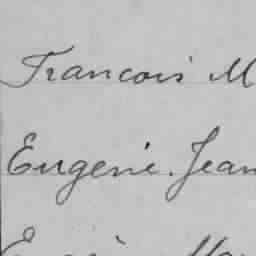 Francois M
Eugenie. Jean